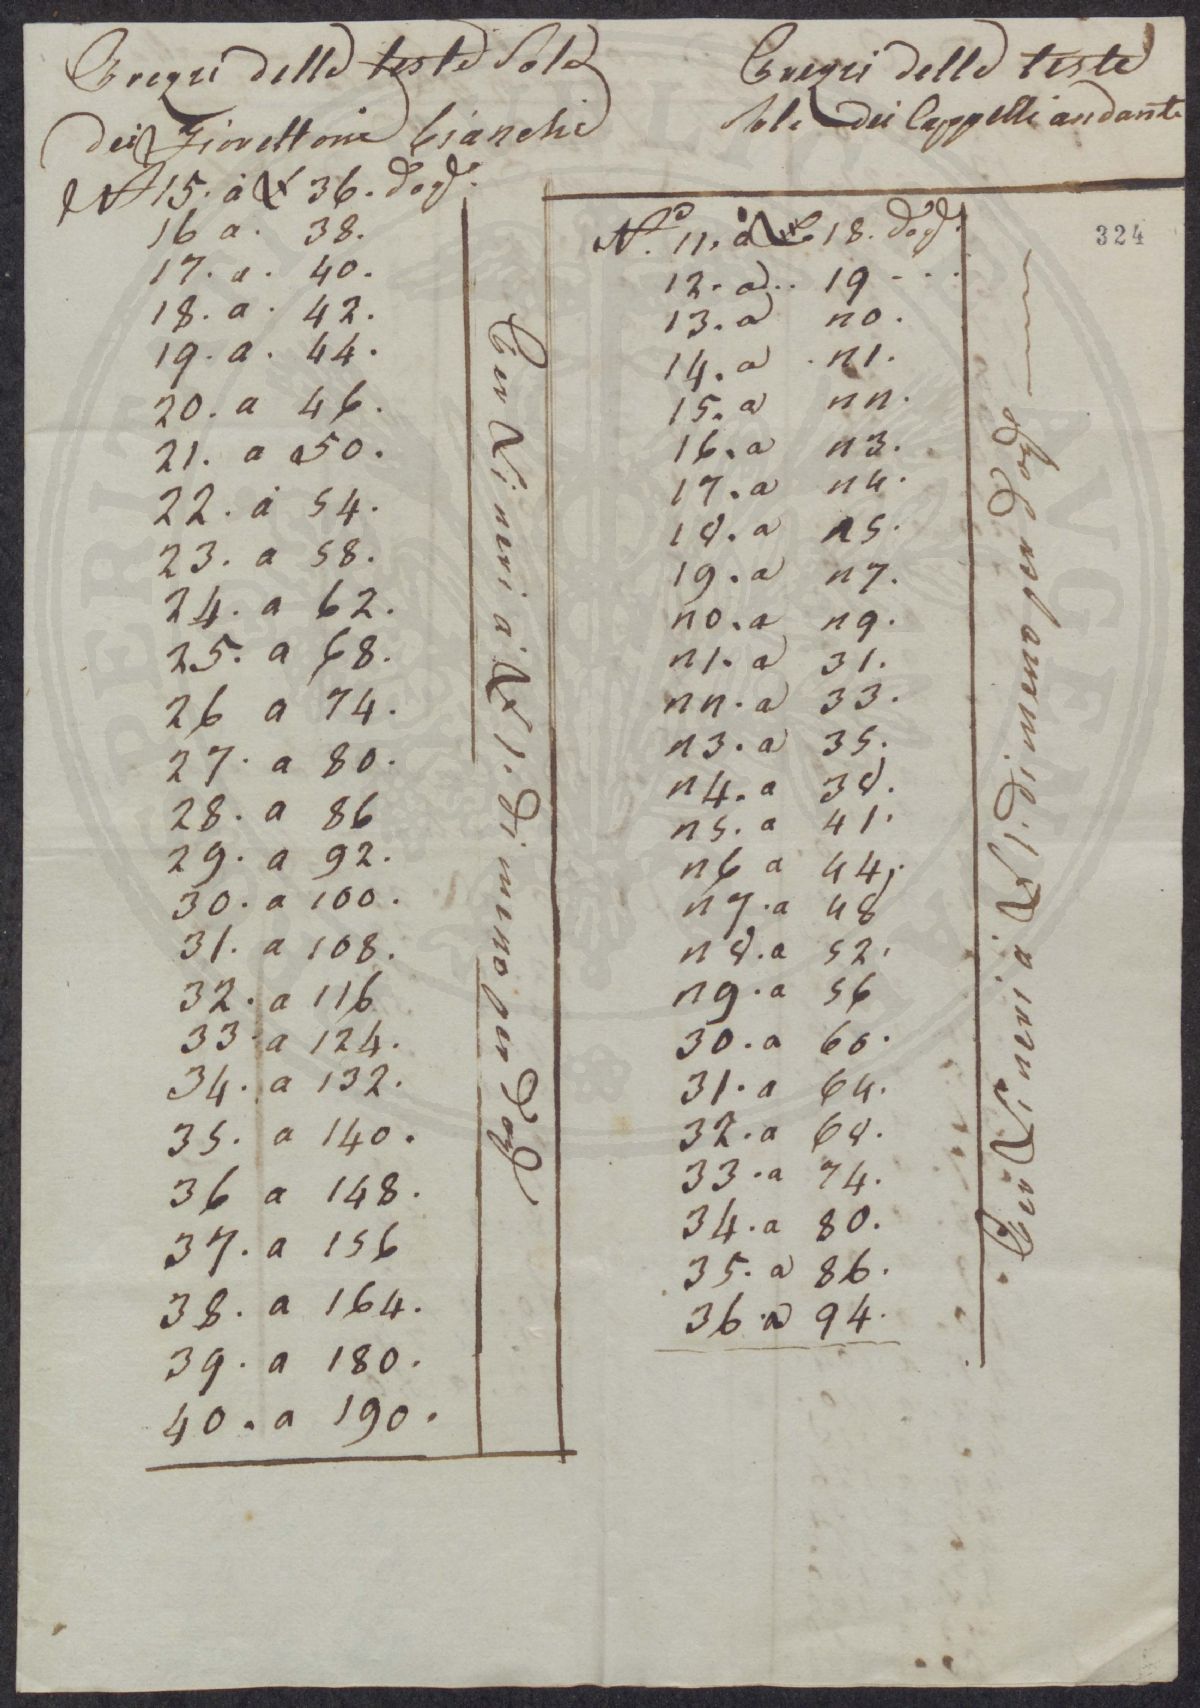 Prezzi delle teste sole
dei Fiorettoni bianchi
N° 15. a £ 36. dozz:
16 a. 38.
17. a. 40.
18. a. 42.
19. a. 44.
20. a 46.
21. a 50.
22. a 54.
23. a 58.
24. a 62.
25. a 68.
26 a 74.
27. a 80.
28. a 86
29. a 92.
30. a 100.
31. a 108.
32. a 116
33. a 124.
34. a 132.
35. a 140.
36 a 148.
37. a 156
38. a 164.
39. a 180.
40. a 190.
Per Li neri a £ 1. di meno per dozz
Prezzi delle teste
sole dei Cappelli andanti
324
N.° 11. a £ 18. dozz.
12. a .. 19 ...
13. a 20.
14. a . 21.
15. a 22.
16. a 23.
17. a 24.
18. a 25.
19. a 27.
20. a 29.
21. a 31.
22. a 33.
23. a 35.
24. a 38.
25. a 41.
26 a 44.
27. a 48
28. a 52.
29. a 56
30. a 60.
31. a 64.
32. a 68.
33. a 74.
34. a 80.
35. a 86.
36. a 94.
Per Li neri a £ 1. di meno per dozz